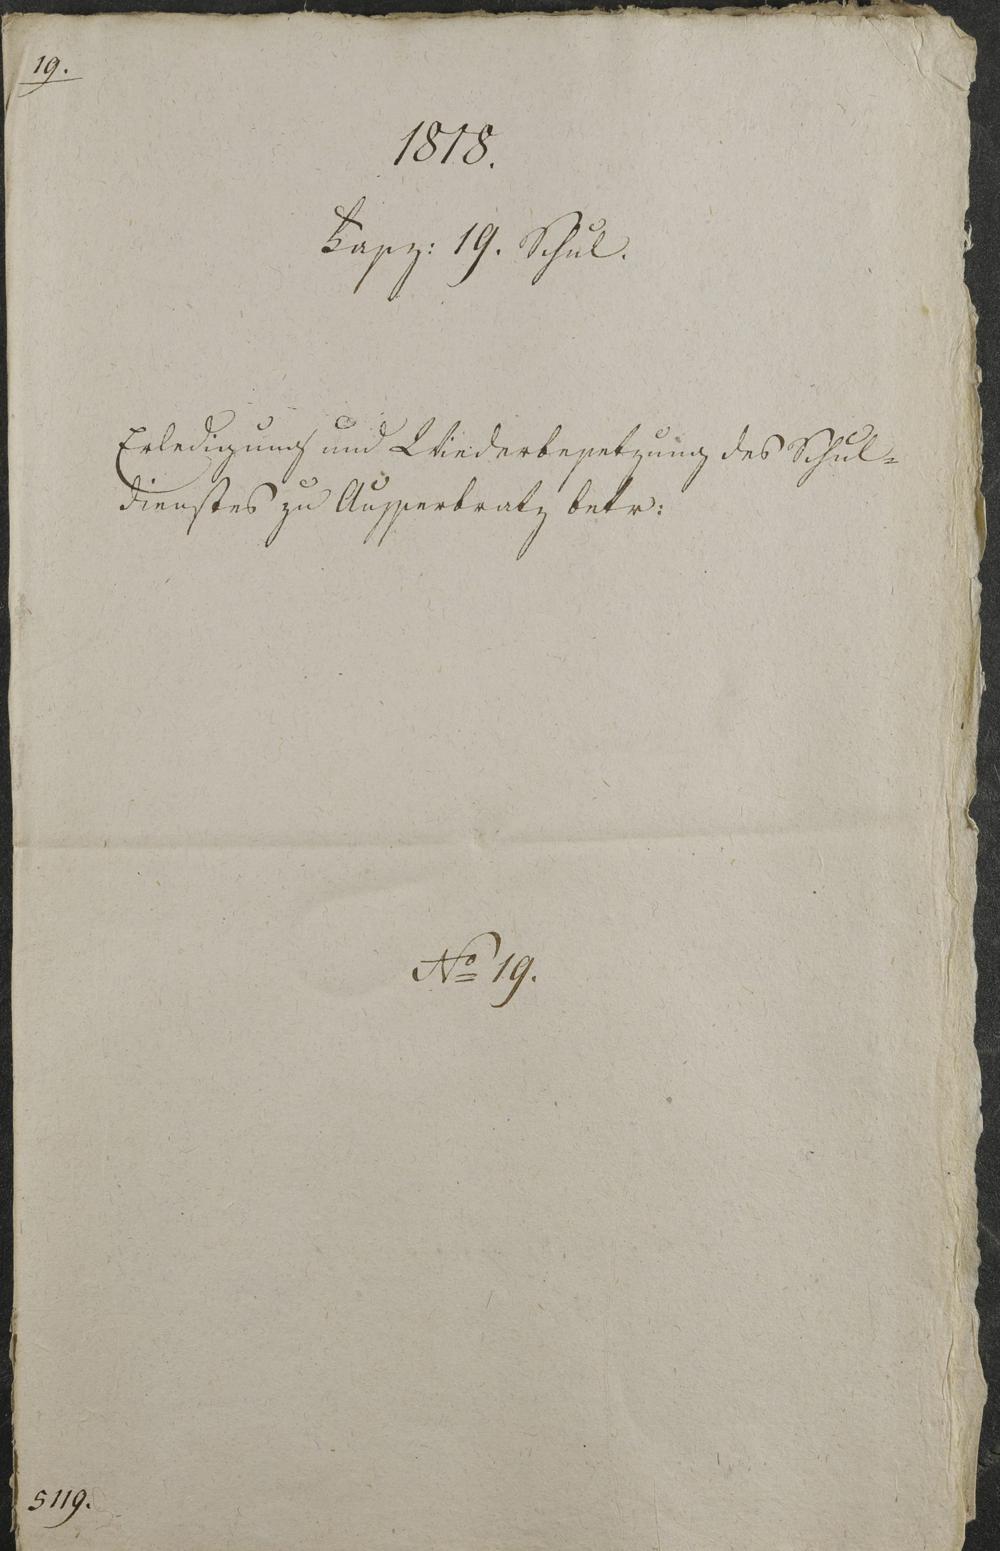 19.
1818.
Fasz: 19. Schul.
Erledigung und Wiederbesetzung des Schul=
dienstes zu Ausserbratz betr:
No 19.
5119.